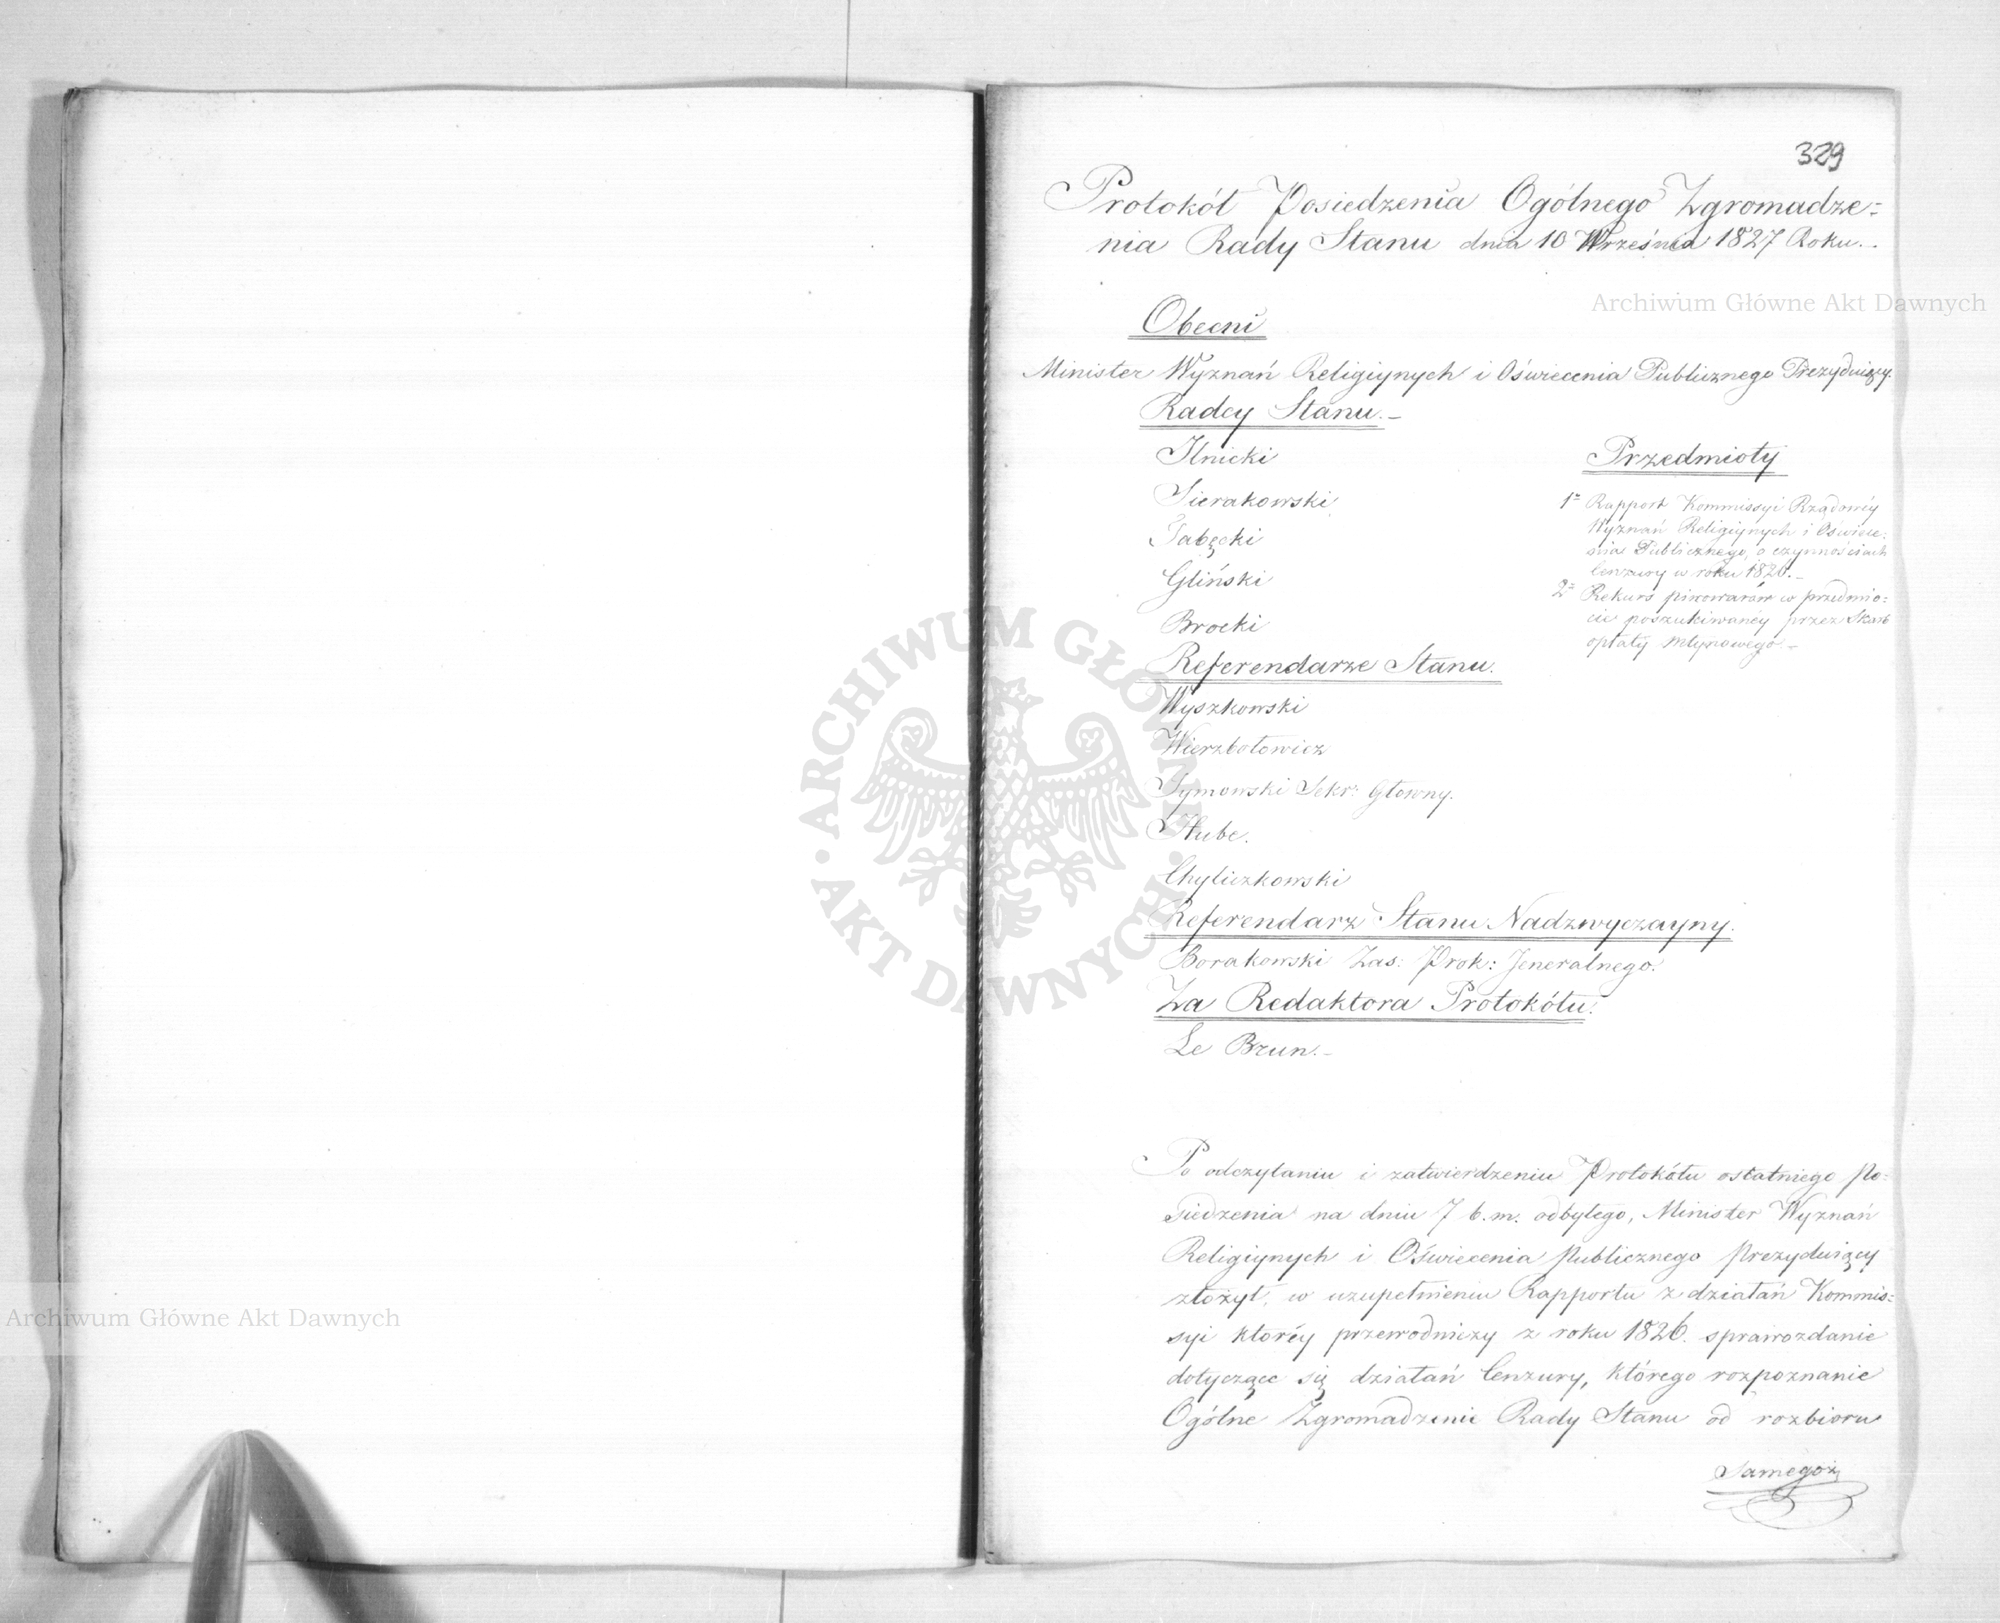 329
Protokół Posiedzenia Ogólnego Zgromadze=
nia Rady Stanu dnia 10 Września 1827 Roku.
Archiwum Główne Akt Dawnych
Obecni
Minister Wyznań Religiynych i Oświecenia Publicznego Prezyduiący.
Radcy Stanu.
Ilnicki
Sierakowski
Tabęcki
Gliński
Brocki
Przedmioty
1º Rapport Kommissyi Rządowéy
Wyznań Religiynych i Oświece=
nia Publicznego, o czynnościach
Cenzury w roku 1826.
2º Rekurs piwowarów w przedmio=
cie poszukiwanéy przez Skarb
opłaty młynowego
Referendarze Stanu.
Wyszkowski
Wierzbołowicz
Tymowski Sekr: Głowny.
Hube.
Chyliczkowski
Referendarz Stanu Nadzwyczayny.
Borakowski Zas: Prok: Jeneralnego.
Za Redaktora Protokółu:
Le Brun.
ARCHIWUM GŁÓWNE AKT DAWNYCH
Po odczytaniu i zatwierdzeniu Protokółu ostatniego Po=
siedzenia na dniu 7 b.m. odbytego, Minister Wyznań
Religiynych i Oświecenia Publicznego Prezyduiący
złożył, w uzupełnieniu Rapportu z działań Kommis=
syi któréy przewodniczy z roku 1826. sprawozdanie
dotyczące się działań Cenzury, którego rozpoznanie
Ogólne Zgromadzenie Rady Stanu od rozbioru
samegoż
Archiwum Główne Akt Dawnych